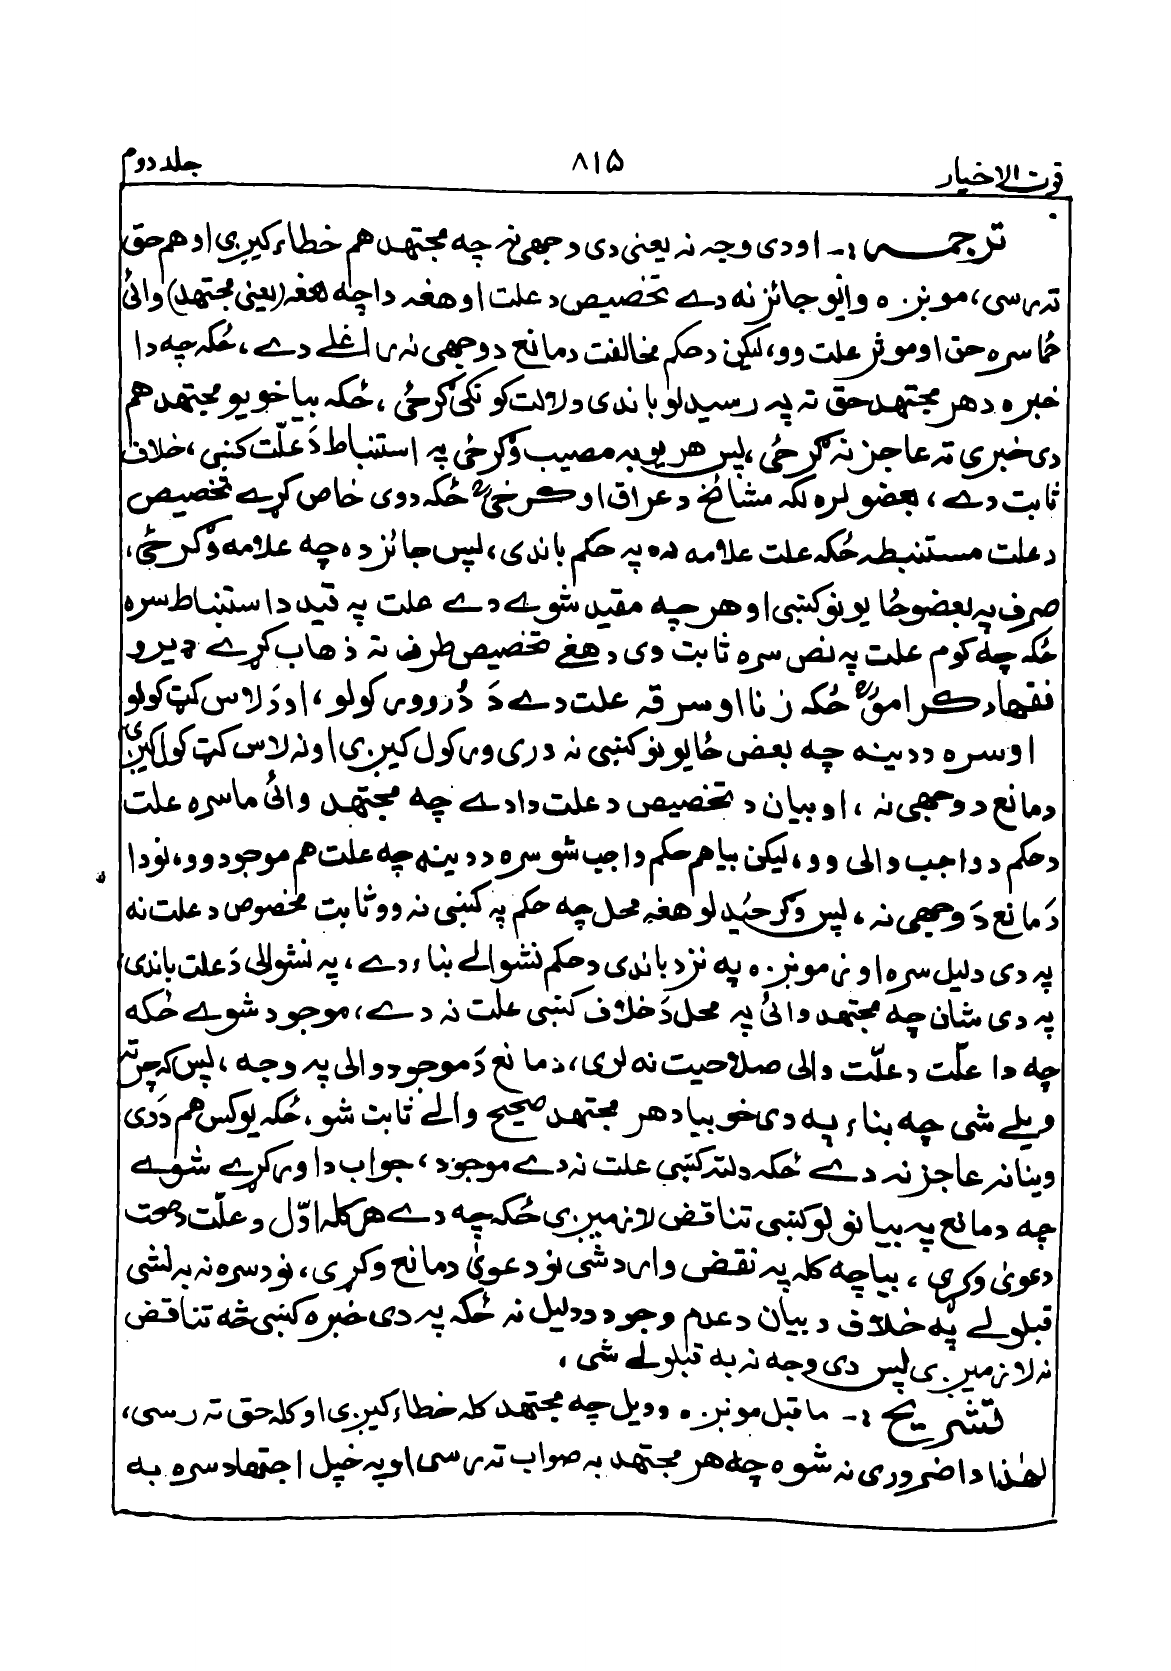 قوت الاخیار ۸۱۵ جلد دوم
ترجمه :- او دی وجه نه یعنی دی د وجهی نه چه مجتهد هم خطاء کیږی او هم حق
ته رسی، مونږه وایو جائز نه دے تخصیص د علت او هغه دا چه هغه (یعنی مجتهد) وائی
ځما سره حق او موثر علت وو، لیکن د حکم مخالفت د مانع د وجهی نه راغلے دے، ځکه چه دا
خبره د هر مجتهد حق ته په رسیدلو باندی دلالت کونکی ګرځی، ځکه بیا خو یو مجتهد هم
دی خبری ته عاجز نه ګرځی، پس هر یو به مصیب وګرځی په استنباط دَ علّت کښی، خلاف
ثابت دے، بعضو لره لکه مشائخ د عراق او کرخیؒ ځکه دوی خاص کړے تخصیص
د علت مستنبطه ځکه علت علامه ده په حکم باندی، پس جائز ده چه علامه وګرځی،
صرف په بعضو ځایونو کښی او هر چه مقید شوے دے علت په قید د استنباط سره
ځکه چه کوم علت په نص سره ثابت وی د هغے تخصیص طرف ته ذهاب کړے ډیرو
فقهاء کرامو ځکه زنا او سرقه علت دے دَ دُرو وړی کولو، او دَ لاس کټ کولو
او سره د دینه چه بعض ځایونو کښی نه دری وړی کول کیږی او نه لاس کټ کول کیږی
د مانع د وجهی نه، او بیان د تخصیص د علت دا دے چه مجتهد وائی ما سره علت
د حکم د واجب والی وو، لیکن بیا هم حکم واجب شو سره د دینه چه علت هم موجود وو، نو دا
دَ مانع دَ وجهی نه، پس وګرځید لو هغه محل چه حکم په کښی نه وو ثابت مخصوص د علت نه
په دی دلیل سره او زمونږه په نزد باندی د حکم نشوالے بناء دے، په نشوالی دَ علت باندی،
په دی شان چه مجتهد وائی په محل دَ خلاف کښی علت نه دے، موجود شوے ځکه
چه دا علّت د علّت والی صلاحیت نه لری، د مانع دَ موجود والی په وجه، پس که چرته
ویلے شی چه بناء په دی خو بیا د هر مجتهد صحیح والے ثابت شو، ځکه یو کس هم دَ دی
وینا نه عاجز نه دے ځکه دلته کښی علت نه دے موجود، جواب داوړ کړے شوے
چه د مانع په بیانولو کښی تناقض لازمیږی ځکه چه دے هر کله اوّل د علّت د صحت
دعویٰ وکړی، بیا چه کله په نقض وارد شی نو دعویٰ د مانع وکړی، نو د سره نه به لشی
قبلولے په خلاف د بیان د عدم وجود د دلیل نه ځکه په دی خبره کښی څه تناقض
نه لازمیږی پس دی وجه نه به قبلولے شی،
تشریح :- ما قبل مونږه وویل چه مجتهد کله خطاء کیږی او کله حق ته رسی،
لهٰذا دا ضروری نه شوه چه هر مجتهد به صواب ته رسی او په خپل اجتهاد سره به